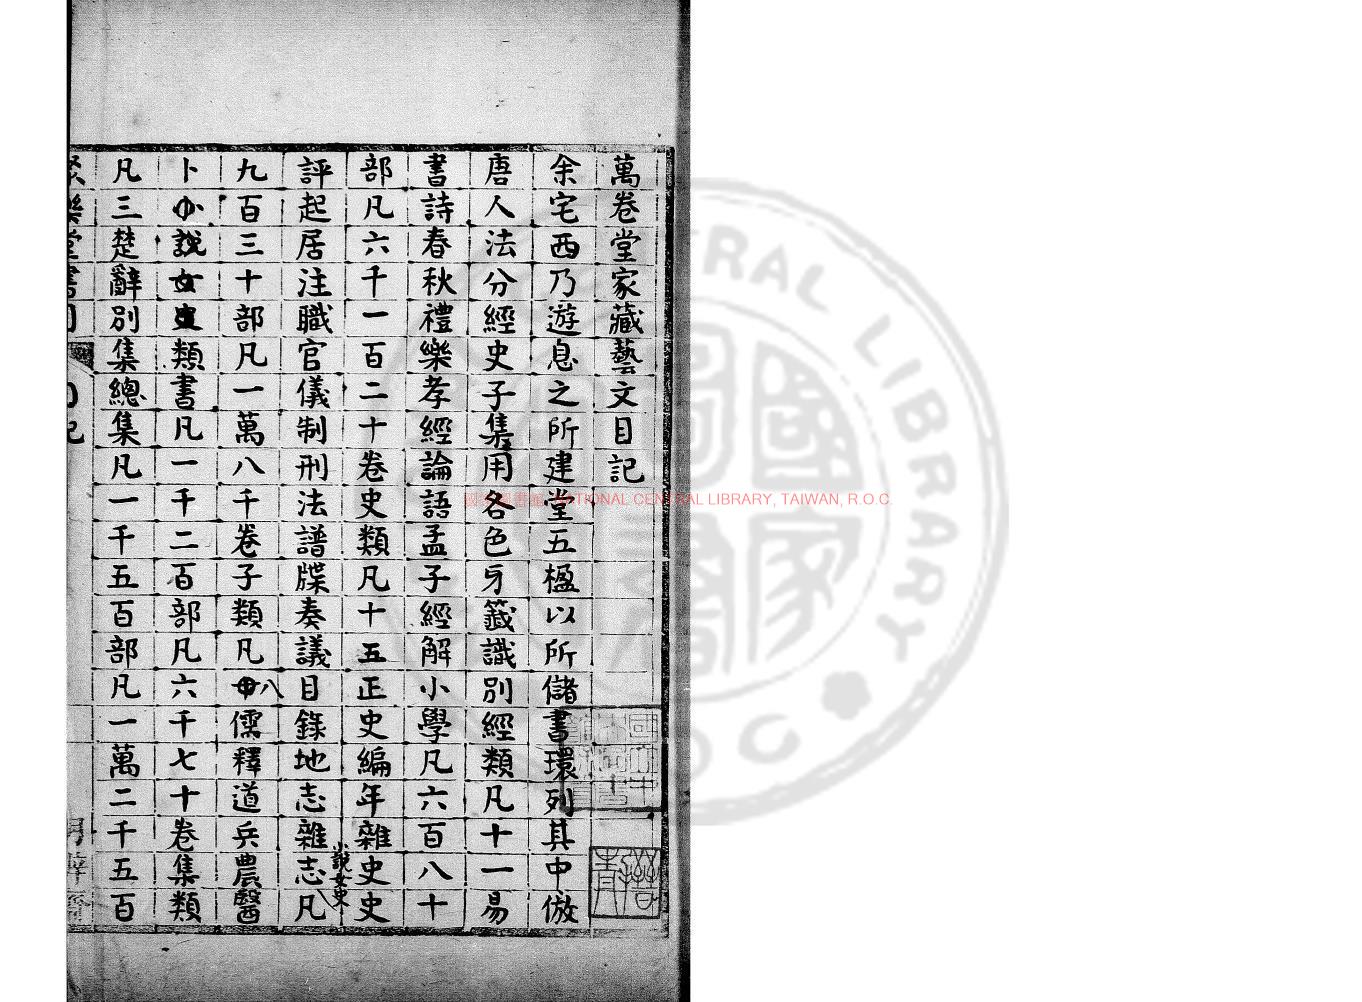 萬卷堂家藏藝文目記
余宅西乃遊息之所建堂五楹以所儲書環列其中倣
唐人法分經史子集用各色牙籤識別經類凡十一易
書詩春秋禮樂孝經論語孟子經解小學凡六百八十
部凡六千一百二十卷史類凡十五正史編年雜史史
小說女史
評起居注職官儀制刑法譜牒奏議目錄地志雜志凡
九百三十部凡一萬八千卷子類凡八儒釋道兵農醫
卜小說女史類書凡一千二百部凡六千七十卷集類
凡三楚辭別集總集凡一千五百部凡一萬二千五百
聚樂堂書目
目記
國家圖書館 NATIONAL CENTRAL LIBRARY, TAIWAN, R.O.C.